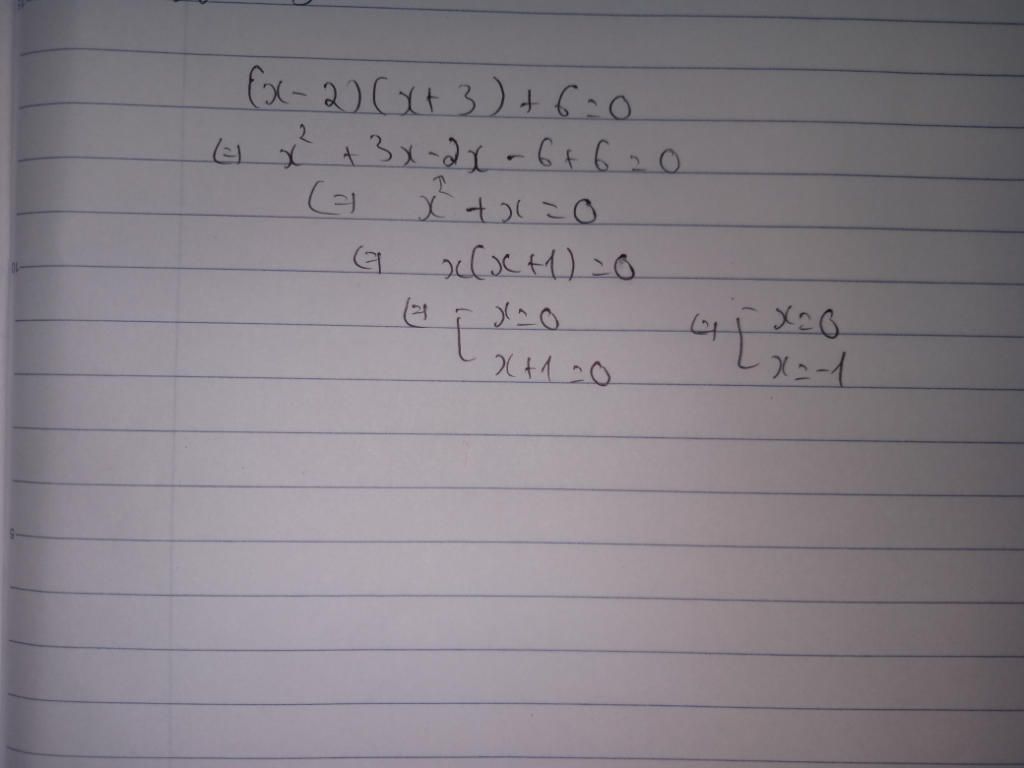 (x-2)(x+3)+6=0
(=) x²+3x-2x-6+6=0
(=) x²+x=0
(=) x(x+1)=0
(=) [ x=0 (=) [ x=0
x+1=0 x=-1